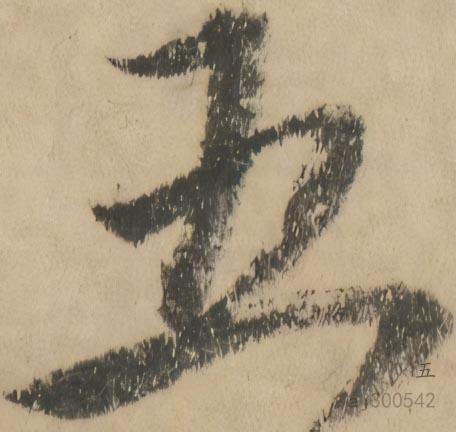 五
五
300542